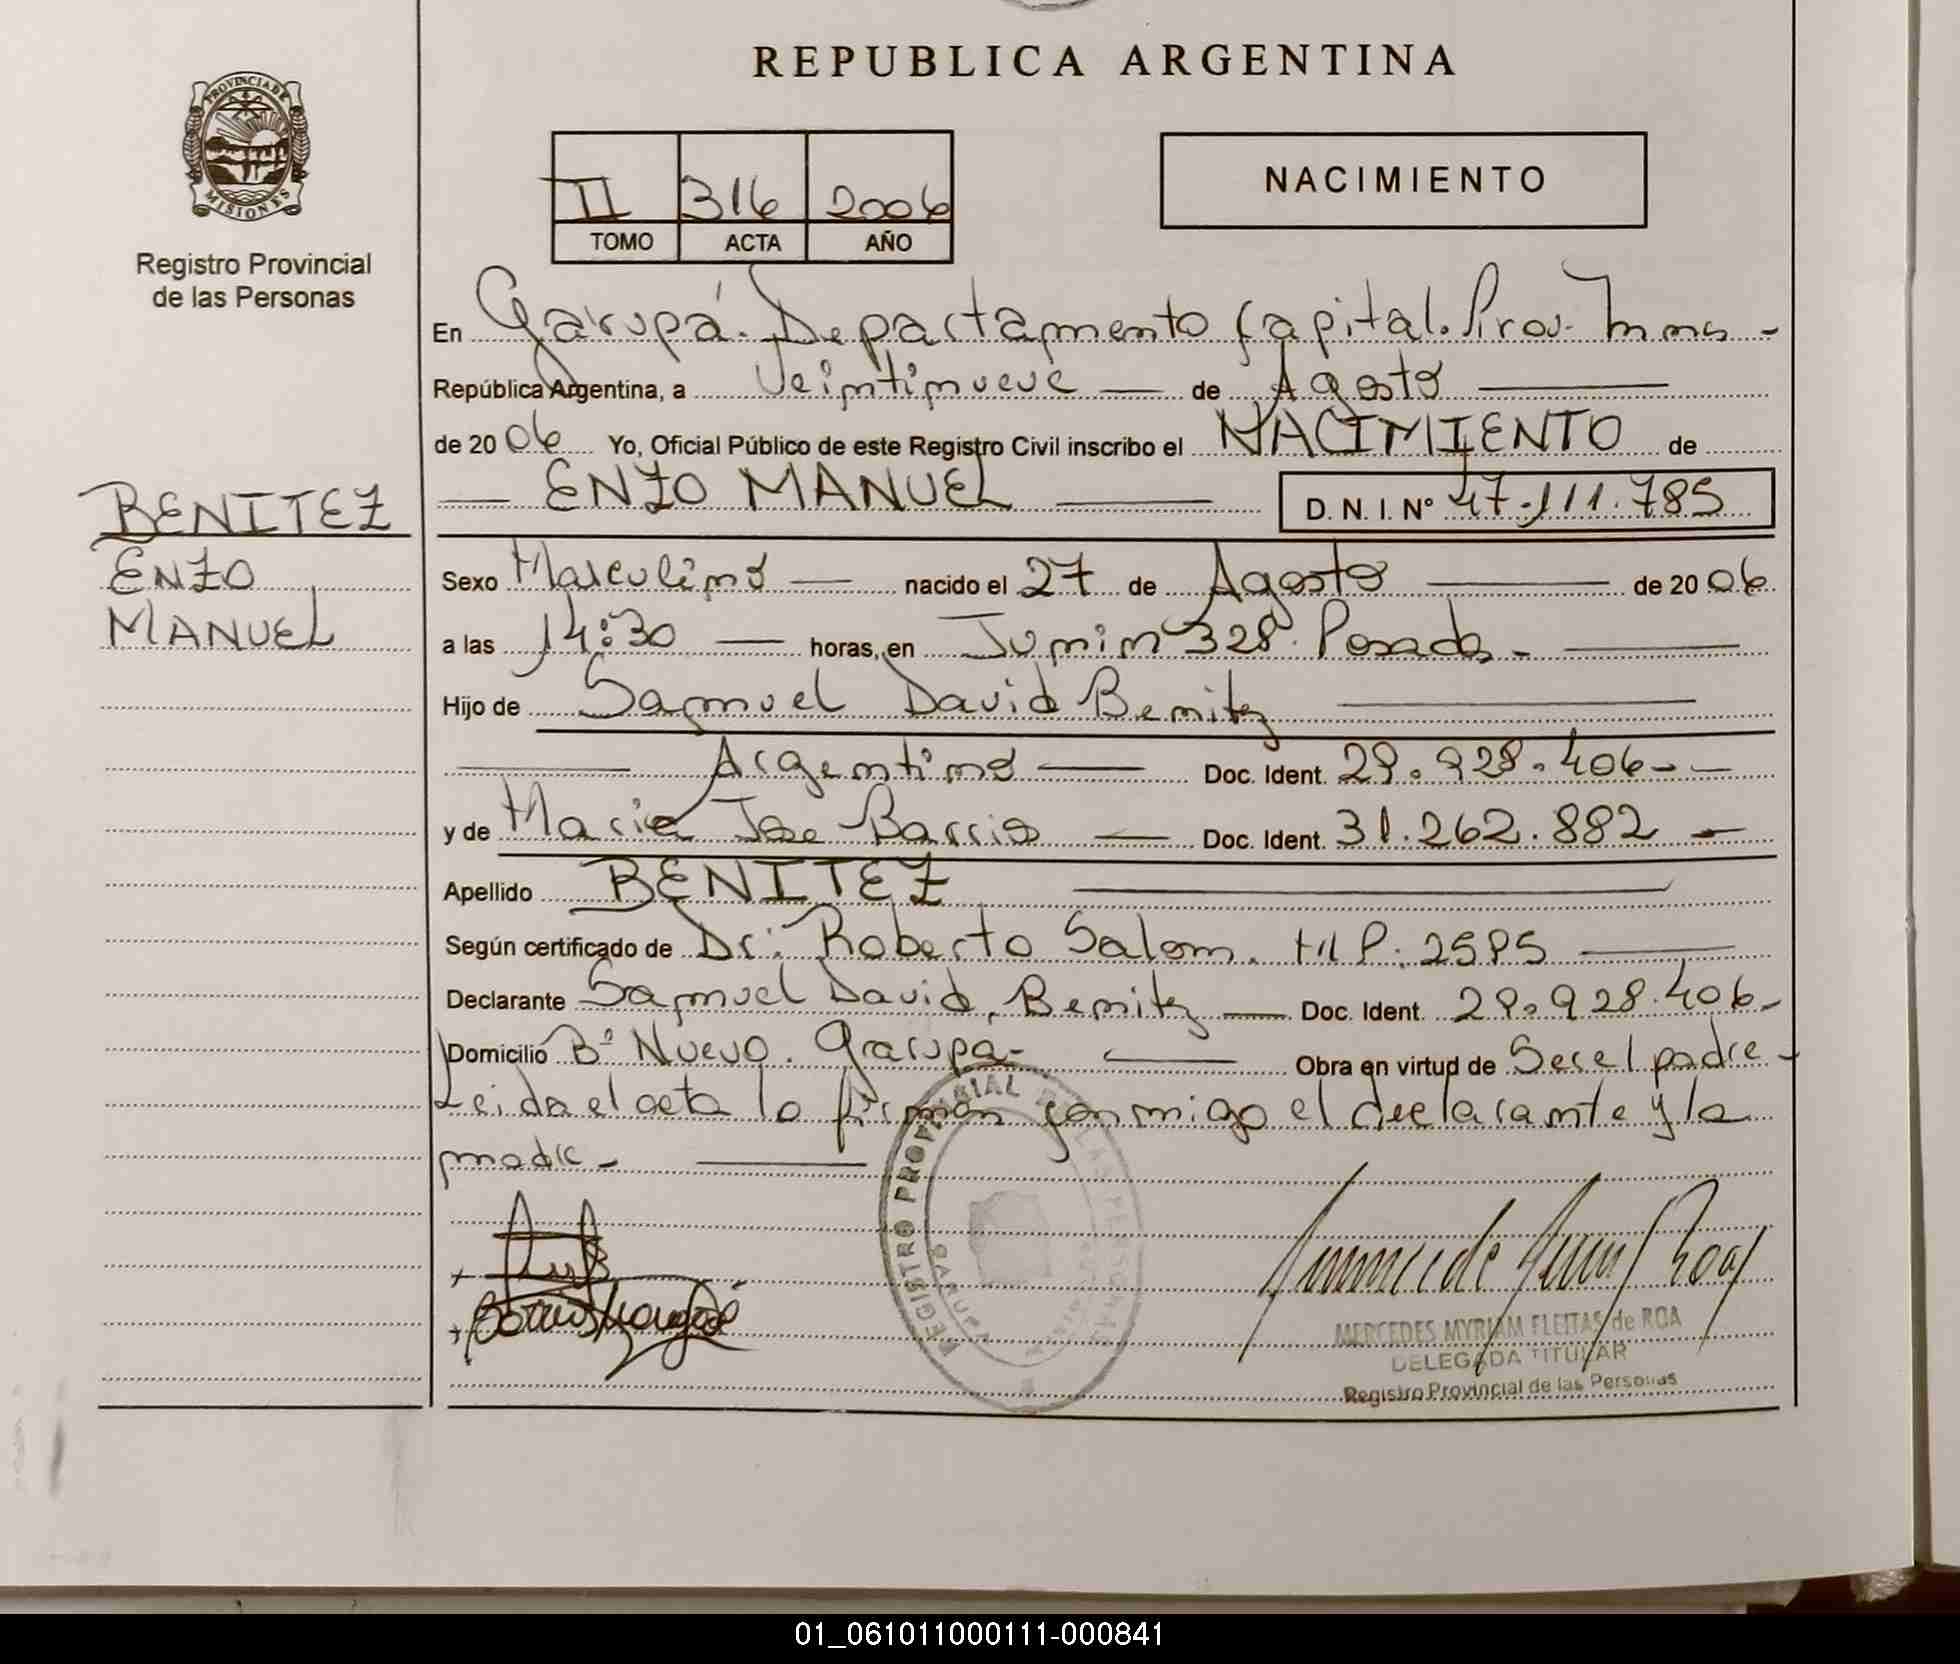 REPUBLICA ARGENTINA
PROVINCIA DE MISIONES
Registro Provincial
de las Personas
II 316 2006
TOMO ACTA AÑO
NACIMIENTO
En Garupá. Departamento Capital. Prov. Mnes -
República Argentina, a Veintinueve de Agosto
de 2006 Yo, Oficial Público de este Registro Civil inscribo el NACIMIENTO de
ENZO MANUEL D. N. I. Nº 47.111.785
BENITEZ
ENZO
MANUEL
Sexo Masculino nacido el 27 de Agosto de 2006
a las 14:30 horas, en Junin 328. Posadas -
Hijo de Samuel David Benitez
Argentino Doc. Ident. 29.928.406 -
y de Maria Jose Barrios Doc. Ident. 31.262.882 -
Apellido BENITEZ
Según certificado de Dr: Roberto Salom. M P:
Declarante Samuel David Benitez Doc. Ident. 29.928.406 -
Domicilio Bº Nuevo. Garupa - Obra en virtud de Ser el padre -
Leida el acta la firman conmigo el declarante y la
madre -
REGISTRO PROVINCIAL DE LAS PERSONAS
GARUPA
MERCEDES MYRIAM FLEITAS de ROA
DELEGADA TITULAR
Registro Provincial de las Personas
01_061011000111-000841